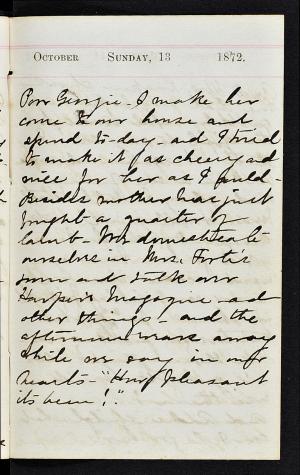 October Sunday, 13 1872.
Poor Georgie - I make her
come to our house and
spend to-day - and I tried
to make it as cheery and
nice for her as I could -
Besides mother has just
bought a quarter of
lamb - We domesticate
ourselves in Mrs. Forte's
room and talk over
Harper's Magazine - and
other things - and the
afternoon wears away
while we say in our
hearts - "How pleasant
its been!"